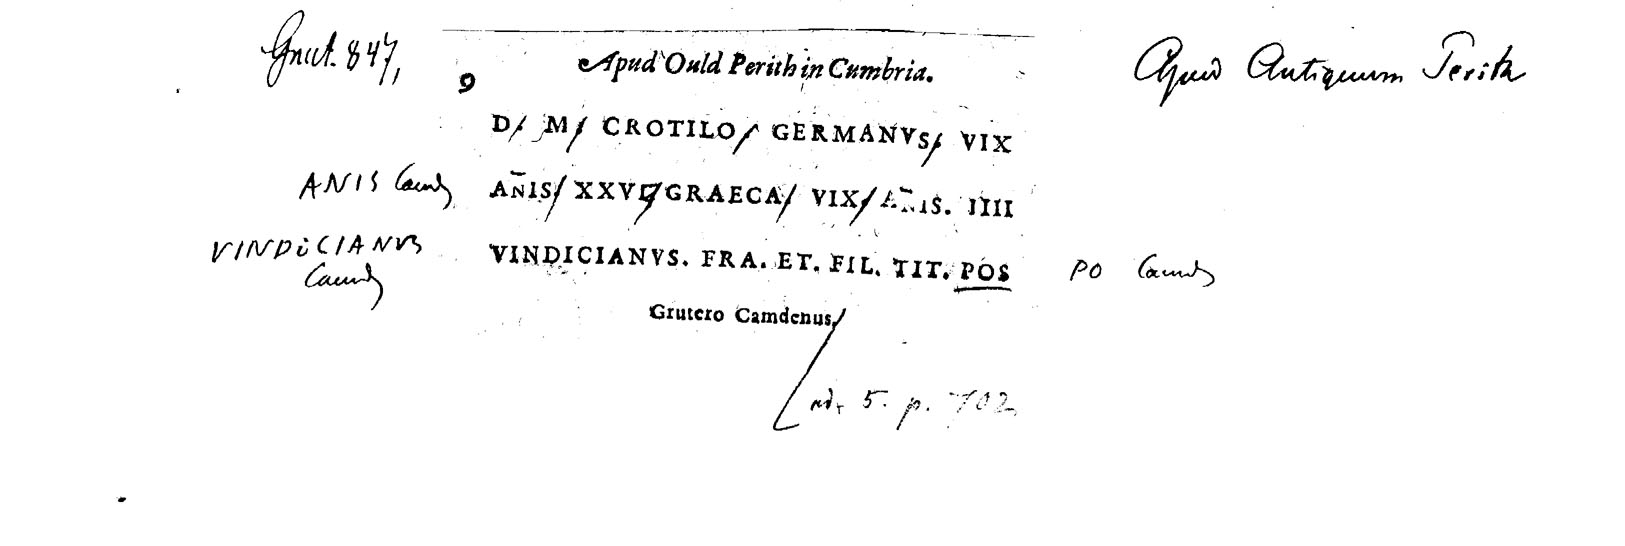 Grut. 847,
9 Apud Ould Perith in Cumbria. Apud Antiquum Perith
D/ M/ CROTILO/ GERMANVS/ VIX
ANIS Camd AÑIS/ XXVI/ GRAECA/ VIX/ AÑIS. IIII
VINDICIANVS Camd VINDICIANVS. FRA. ET. FIL. TIT. POS PO Camd
Grutero Camdenus,
ed. 5. p. 702